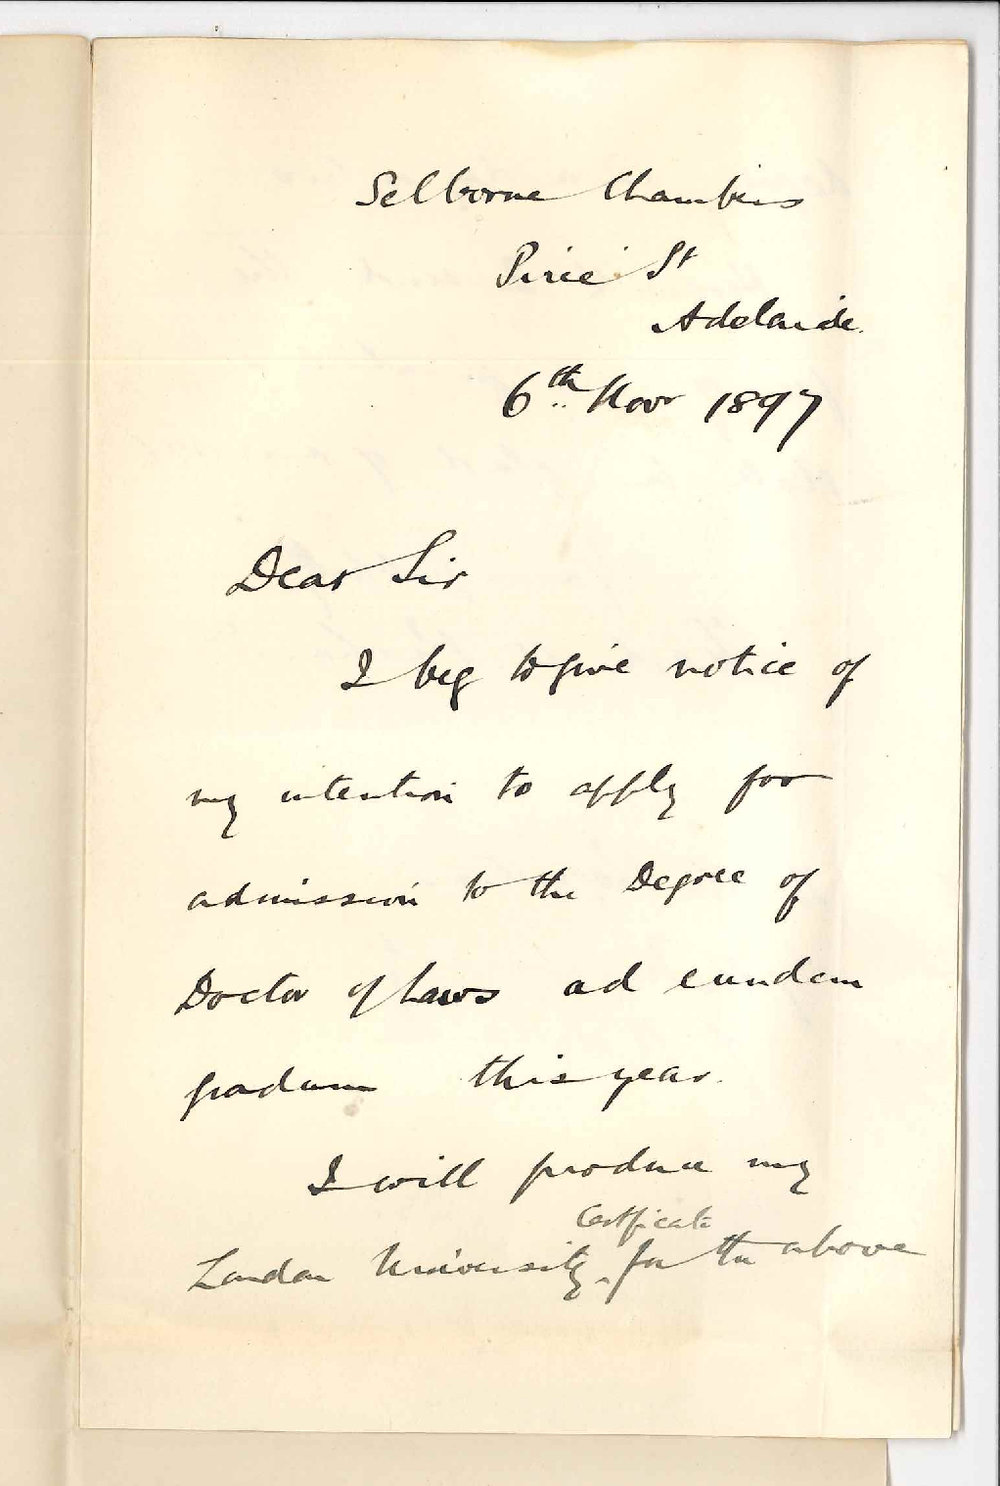 Selborne Chambers
Pirie St
Adelaide.
6th Novr 1897
Dear Sir
I beg to give notice of
my intention to apply for
admission to the Degree of
Doctor of Laws ad eundem
gradum this year.
I will produce my
Certificate
London University ^ for the above